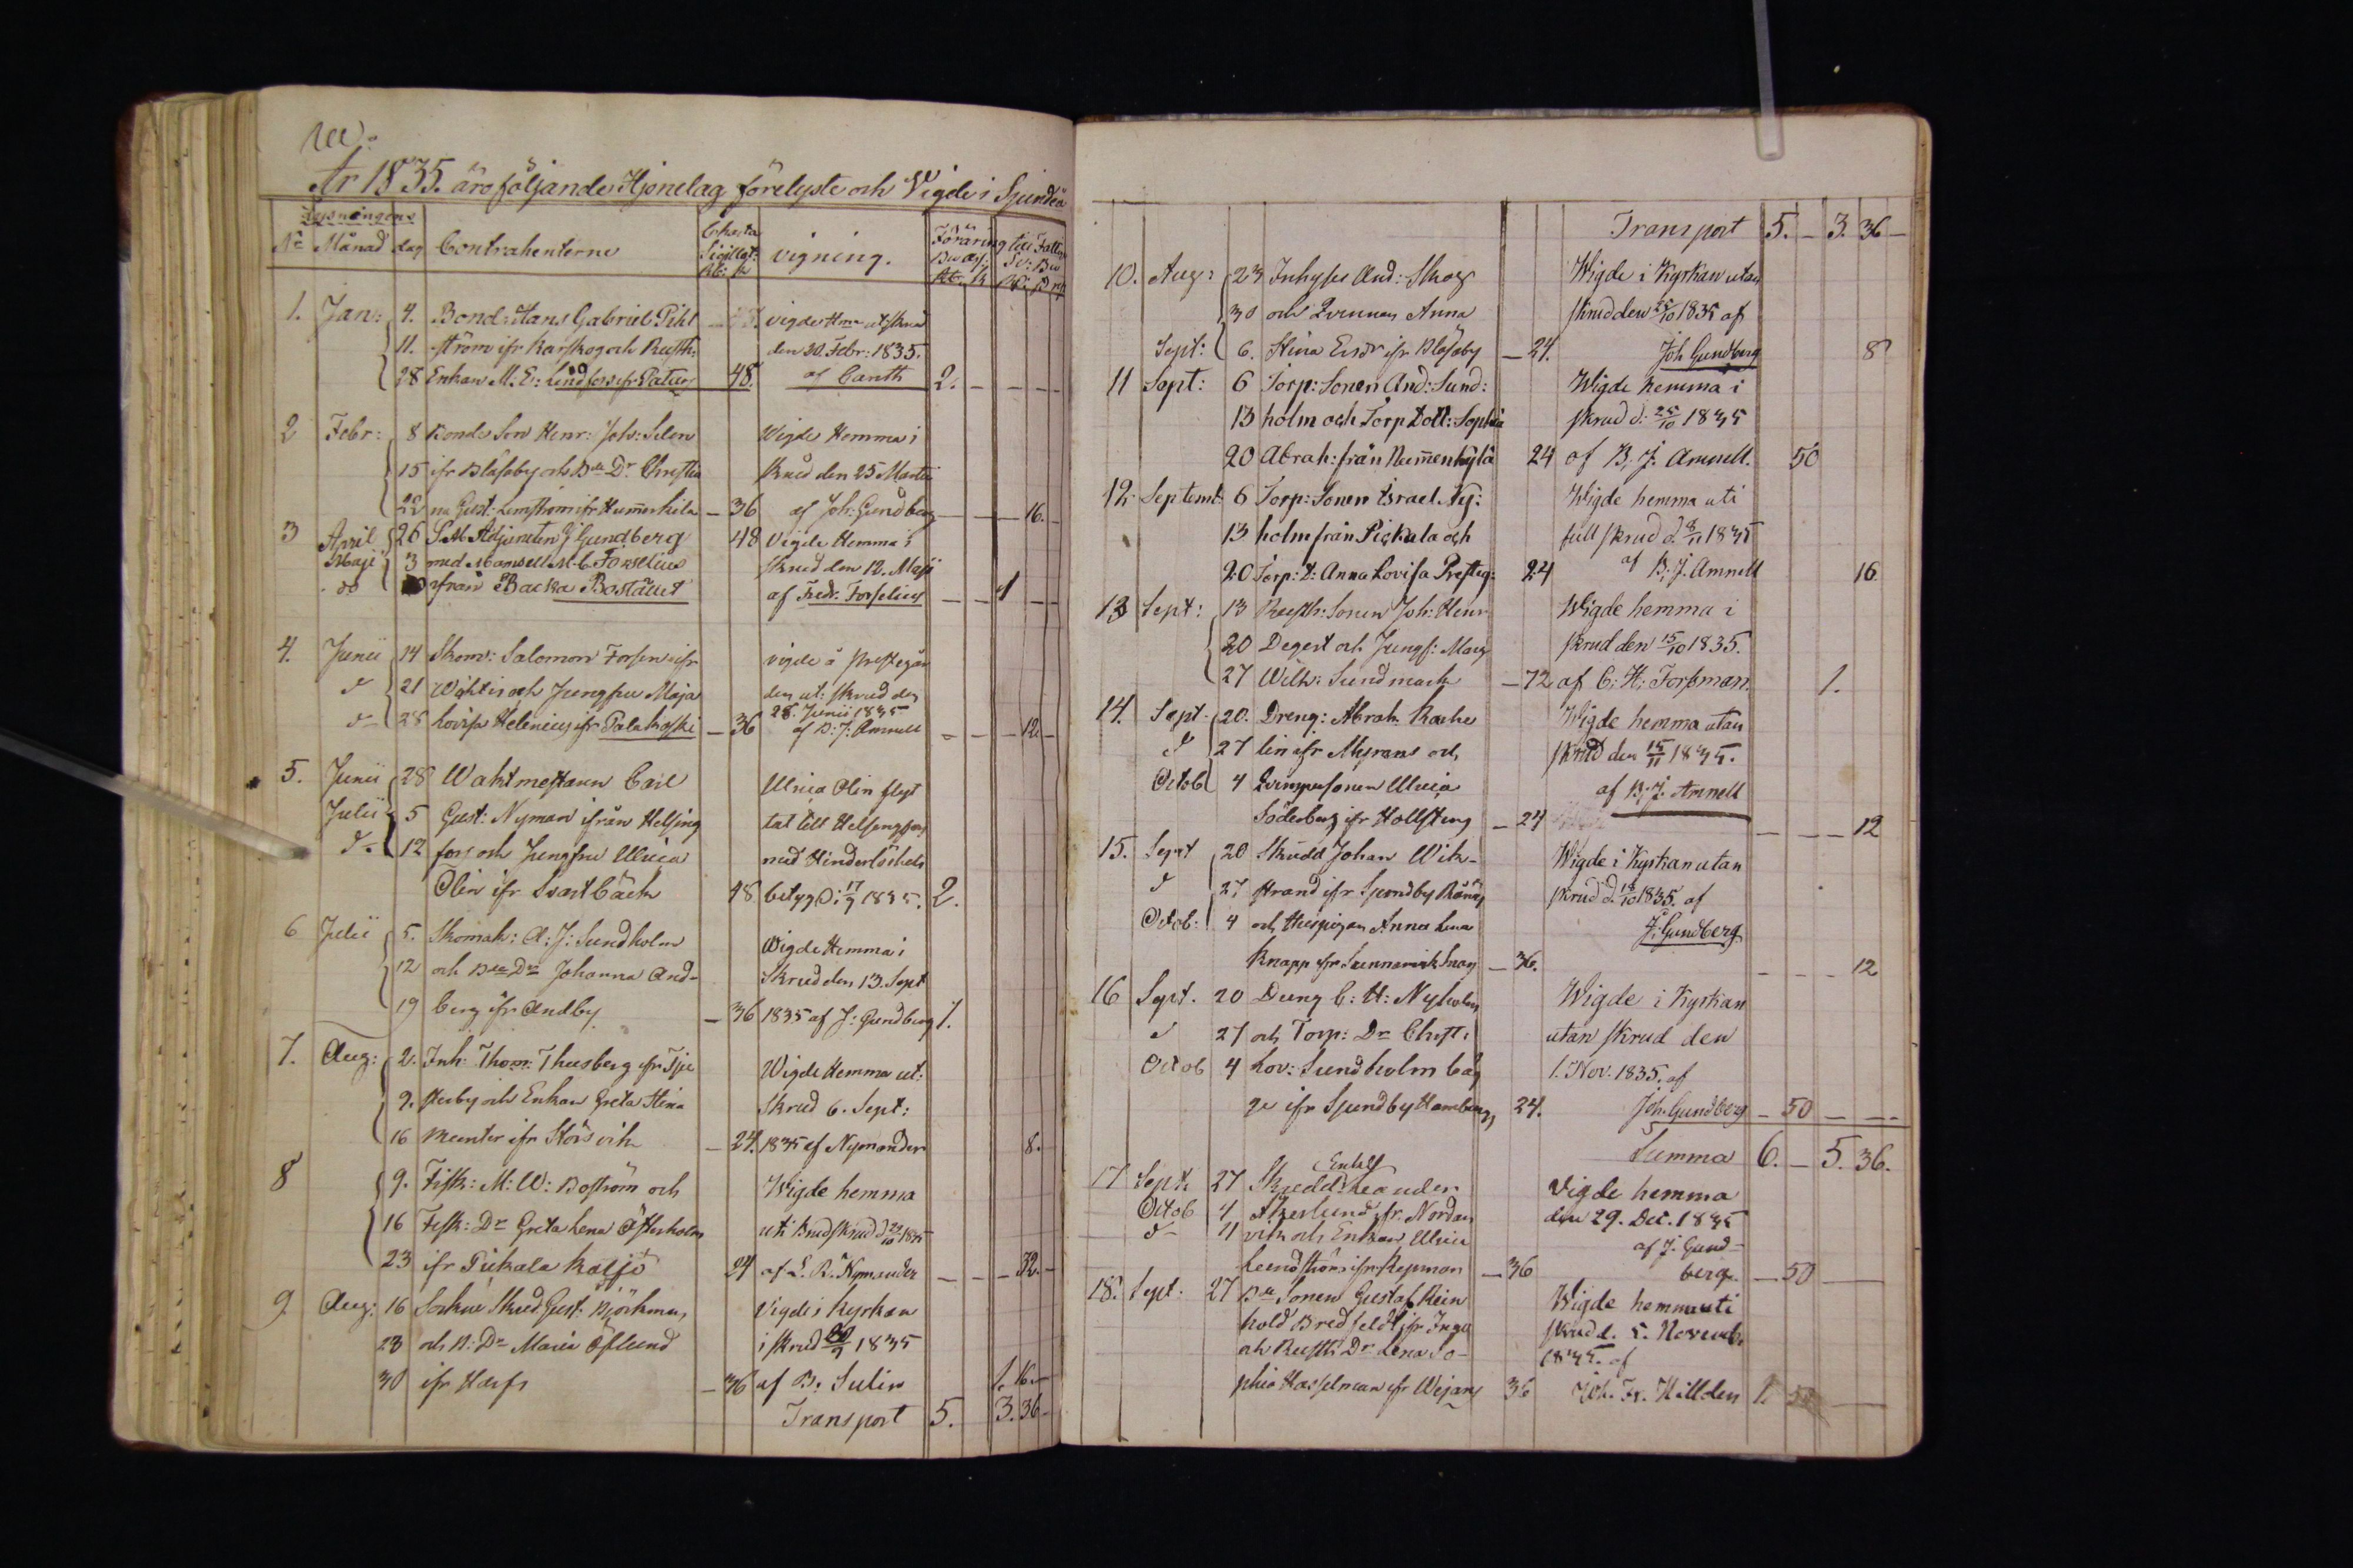 År 1835. äro följande Hjonelag förelyste och Vigde i Sjundeå
Lysningens
No Månad dag Contrahenterne Charta Sigillat: vigning. Föräring till Fattig
1. Jan: 4. Bond: Hans Gabriel Pihl vigde Hma ut skrud
11. ström ifr Karskog och Rusth: den 20. Febr: 1835.
28 Enkan M. E: Lindfors ifr Patur 48. af Canth 2. – – –
2 Febr: 8 Bonde Son Henr: Joh: Selen Vigde Hemma i
15 ifr Blåsaby och Bde Dr Christi Skrud den 25 Martii
22 na Gust: Lemström ifr Hummerkila – 36 af Joh: Gundberg – – – 16. –
3 April 26 S. M. Adjuncten J Gundberg 48 Vigde Hemma i
Maji 3 med Mamsell M. C. Forselius Skrud den 12. Maji
do från Backa Bostället af Fredr. Forselius – – 1 – –
4. Junii 14 Skom: Salomon Forsen ifr vigde å Prestegår
d 21 Wohtis och Jungfru Maja den ut: skrud den
28. Junii 1835
d– 28 Lovisa Helenius ifr Palakoski – 36 af B: J: Amnell – – – 12. –
5. Junii 28 Waktmestaren Carl Ulrica Olin flyt
Julii 5 Gust: Nyman ifrån Helsing tat till Helsingfors
d– 12 fors och Jungfru Ulrica med Hinderlöshets
Olin ifr Svartbäck 48 betyg d: 17/9 1835. 2.
6 Julii 5. Skomak: A: J: Sundholm Wigde Hemma i
12 och Bde Dr Johanna And- Skrud den 13. Sept
19 berg ifr Andby – 36 1835 af J: Gundberg 1.
7. Aug: 2. Inh: Thom: Thusberg ifr Tju Wigde Hemma ut:
9. sterby och Enkan Greta Stina Skrud 6. Sept:
16 Munter ifr Störsvik – 24. 1835 af Nymander 8. –
8 9. Fisk: M: W: Boström och Wigde hemma
16 Fisk: Dr Greta Lena Österholm uti Brudskrud d 22/10 1835
23 ifr Pickala Kasjö 24 af L. B. Nymander – – – 32. –
9 Aug: 16 Sockne Skrud: Gust. Björkman, Vigde i Kyrkan
23 och B: Dr Maria Öflund i skrud 1835
30 ifr Harfs – 36 af B: Sulin 1. 16. –
Transport 5. 3. 36 –
Transport 5. – 3. 36 –
10. Aug: 23 Inhyses And: Skog Wigde i Kyrkan utan
30 och Qvinnan Anna skrud den 25/10 1835 af
Sept: 6. Stina Ersdr ifr Blåsaby – 24. Joh Gundberg 8
11 Sept: 6 Torp: Sonen And: Sund: Wigde hemma i
13 holm och Torp Dott: Sophia skrud d: 25/10 1835
20 Abrah: från Nummenkylä 24 af B. J. Amnell. 50
12. Septemb: 6 Torp: Sonen Israel Ny: Wigde hemma uti
13 holm från Pickala och full skrud d 8/11 1835
20 Torp: D: Anna Lovisa Presteg: 24 af B. J. Amnell 16
13 Sept: 13 Rusth: Sonen Joh: Henr Wigde hemma i
20 Degert och Jungf: Marg skrud den 15/10 1835.
27 Wilh: Sundmark – 72 af C: H: Forsman. 1.
14. Sept. 20. Dreng: Abrah. Karhe Wigde hemma utan
d 27 lin ifr Myrans och skrud den 15/11 1835.
Octob 4 Qvinspersonen Ulrica af B. J. Amnell
Söderberg ifr Hollsteng – 24 – – – 12
15. Sept 20 Skrädd Johan Wik- Wigde i Kyrkan utan
d 27 strand ifr Sjundby Rånäs skrud d. 18/10 1835. af
Octob: 4 och Thespigan Anna Lena J. Gundberg
Knapp ifr Sunnanvik Snog – 36. – – – 12
16 Sept. 20 Dreng C: H: Nyholm Wigde i Kyrkan
d 27 och Torp: Dr Christ: utan skrud den
Octob 4 Lov: Sundholm båg 1. Nov. 1835. af
ge ifr Sjundby Hamberg, 24. Joh. Gundberg – 50 – –
Summa 6. – 5. 36.
Enkelf
17 Sept. 27 Skrädd: Leander Vigde hemma
Octob 4 Åkerlund ifr. Nordan den 29. Dec. 1835
d– 11 vik och Enkan Ulrica af J. Gund-
Lundström ifr Kepman – 36 berg. – 50 –
18. Sept. 27 Bde Sonen Gustaf Rein Wigde hemma uti
hold Bredfeldt ifr Inga skrud d. 5. Novemb.
och Rusth: Dr Lena So- 1835. af
phia Hasselman ifr Wejans 36 Joh. Fr. Hellden 1.